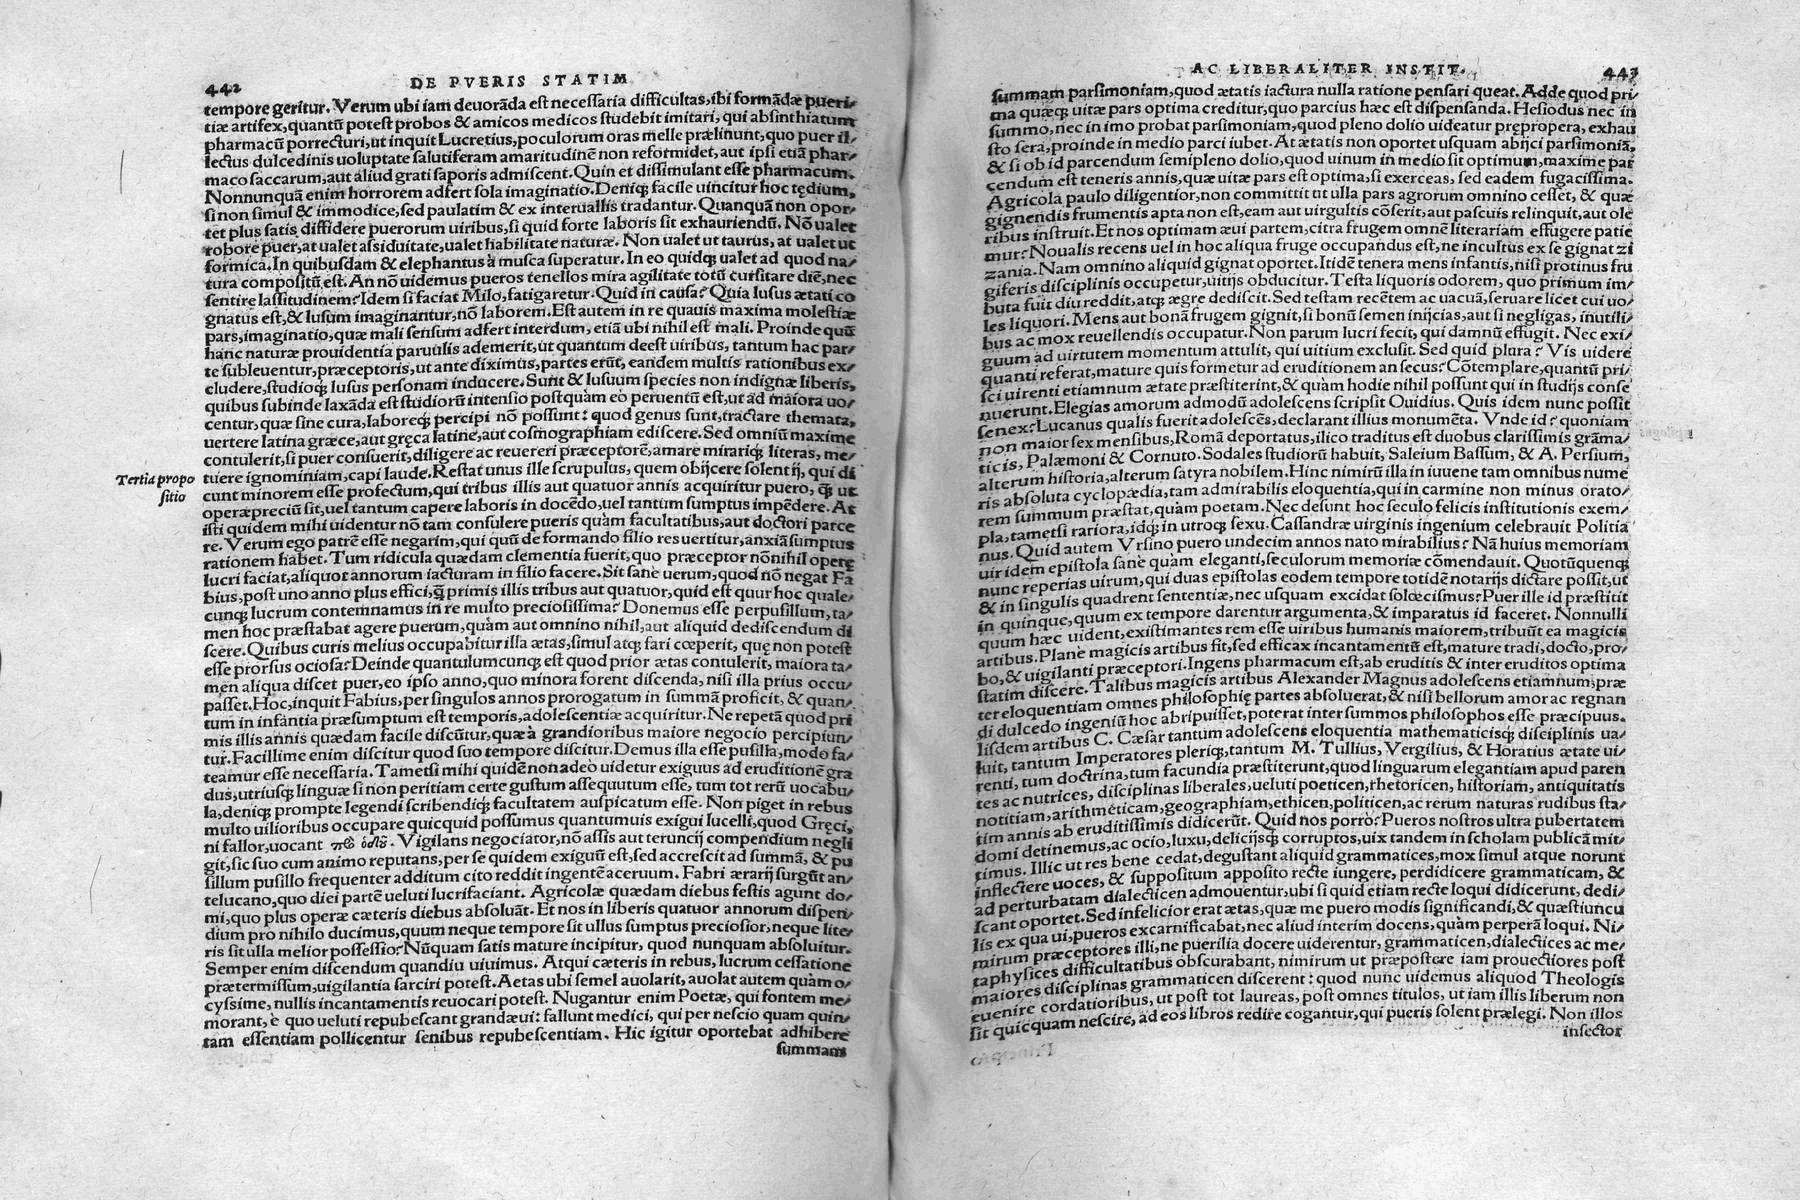 442 DE PVERIS STATIM
tempore geritur. Verum ubi iam deuorãda est necessaria difficultas, ibi formãdæ pueri-
tiæ artifex, quantũ potest probos & amicos medicos studebit imitari, qui absinthiatum
pharmacũ porrecturi, ut inquit Lucretius, poculorum oras melle prælinunt, quo puer il-
lectus dulcedinis uoluptate salutiferam amaritudinẽ non reformidet, aut ipsi etiã phar-
maco saccarum, aut aliud grati saporis admiscent. Quin et dissimulant esse pharmacum.
Nonnunquã enim horrorem adfert sola imaginatio. Deniqꝫ facile uincitur hoc tędium,
si non simul & immodice, sed paulatim & ex interuallis tradantur. Quanquã non opor-
tet plus satis diffidere puerorum uiribus, si quid forte laboris sit exhauriendũ. Nõ ualet
robore puer, at ualet assiduitate, ualet habilitate naturæ. Non ualet ut taurus, at ualet ut
formica. In quibusdam & elephantus à musca superatur. In eo quidqꝫ ualet ad quod na-
tura compositũ est. An nõ uidemus pueros tenellos mira agilitate totũ cursitare diẽ, nec
sentire lassitudinem? Idem si faciat Milo, fatigaretur. Quid in causa? Quia lusus ætati co
gnatus est, & lusum imaginantur, nõ laborem. Est autem in re quauis maxima molestiæ
pars, imaginatio, quæ mali sensum adfert interdum, etiã ubi nihil est mali. Proinde quũ
hanc naturæ prouidentia paruulis ademerit, ut quantum deest uiribus, tantum hac par-
te subleuentur, præceptoris, ut ante diximus, partes erũt, eandem multis rationibus ex-
cludere, studioqꝫ lusus personam inducere. Sunt & lusuum species non indignæ liberis,
quibus subinde laxãda est studiorũ intensio postquàm eò peruentũ est, ut ad maiora uo-
centur, quæ sine cura, laboreqꝫ percipi nõ possunt: quod genus sunt, tractare themata,
uertere latina græce, aut gręca latine, aut cosmographiam ediscere. Sed omniũ maxime
contulerit, si puer consuerit, diligere ac reuereri præceptorẽ, amare mirariqꝫ literas, me-
Tertia propo
sitio
tuere ignominiam, capi laude. Restat unus ille scrupulus, quem obijcere solent ij, qui di
cunt minorem esse profectum, qui tribus illis aut quatuor annis acquiritur puero, q̃ꝫ ut
operæpreciũ sit, uel tantum capere laboris in docẽdo, uel tantum sumptus impẽdere. At
isti quidem mihi uidentur nõ tam consulere pueris quàm facultatibus, aut doctori parce
re. Verum ego patrẽ esse negarim, qui quũ de formando filio res uertitur, anxiã sumptus
rationem habet. Tum ridicula quædam clementia fuerit, quo præceptor nõnihil operę
lucri faciat, aliquot annorum iacturam in filio facere. Sit sanè uerum, quod nõ negat Fa
bius, post uno anno plus effici, q̃ primis illis tribus aut quatuor, quid est quur hoc quale-
cunqꝫ lucrum contemnamus in re multo preciosissima? Donemus esse perpusillum, ta-
men hoc præstabat agere puerum, quàm aut omnino nihil, aut aliquid dediscendum di
scere. Quibus curis melius occupabitur illa ætas, simul atqꝫ fari cœperit, quę non potest
esse prorsus ociosa? Deinde quantulumcunqꝫ est quod prior ætas contulerit, maiora ta-
men aliqua discet puer, eo ipso anno, quo minora forent discenda, nisi illa prius occu-
passet. Hoc, inquit Fabius, per singulos annos prorogatum in summã proficit, & quan-
tum in infantia præsumptum est temporis, adolescentiæ acquiritur. Ne repetã quod pri
mis illis annis quædam facile discũtur, quæ à grandioribus maiore negocio percipiun-
tur. Facillime enim discitur quod suo tempore discitur. Demus illa esse pusilla, modo fa-
teamur esse necessaria. Tametsi mihi quidẽ non adeò uidetur exiguus ad eruditionẽ gra
dus, utriusqꝫ linguæ si non peritiam certe gustum assequutum esse, tum tot rerũ uocabu-
la, deniqꝫ prompte legendi scribendiqꝫ facultatem auspicatum esse. Non piget in rebus
multo uilioribus occupare quicquid possumus quantumuis exigui lucelli, quod Gręci,
ni fallor, uocant . Vigilans negociator, nõ assis aut teruncij compendium negli
git, sic suo cum animo reputans, per se quidem exiguũ est, sed accrescit ad summã, & pu
sillum pusillo frequenter additum cito reddit ingentẽ aceruum. Fabri ærarij surgũt an-
telucano, quo diei partẽ ueluti lucrifaciant. Agricolæ quædam diebus festis agunt do-
mi, quo plus operæ cæteris diebus absoluãt. Et nos in liberis quatuor annorum disperi-
dium pro nihilo ducimus, quum neque tempore sit ullus sumptus preciosior, neque lite-
ris sit ulla melior possessio? Nũquam satis mature incipitur, quod nunquam absoluitur.
Semper enim discendum quandiu uiuimus. Atqui cæteris in rebus, lucrum cessatione
prætermissum, uigilantia sarciri potest. Aetas ubi semel auolarit, auolat autem quàm o-
cyssime, nullis incantamentis reuocari potest. Nugantur enim Poetæ, qui fontem me-
morant, è quo ueluti repubescant grandæui: fallunt medici, qui per nescio quam quin-
tam essentiam pollicentur senibus repubescentiam. Hic igitur oportebat adhibere
summam
AC LIBERALITER INSTIT. 443
summam parsimoniam, quod ætatis iactura nulla ratione pensari queat. Adde quod pri-
ma quæqꝫ uitæ pars optima creditur, quo parcius hæc est dispensanda. Hesiodus nec in
summo, nec in imo probat parsimoniam, quod pleno dolio uideatur prępropera, exhau
sto sera, proinde in medio parci iubet. At ætatis non oportet usquam abijci parsimoniã,
& si ob id parcendum semipleno dolio, quod uinum in medio sit optimum, maxime par
cendum est teneris annis, quæ uitæ pars est optima, si exerceas, sed eadem fugacissima.
Agricola paulo diligentior, non committit ut ulla pars agrorum omnino cesset, & quæ
gignendis frumentis apta non est, eam aut uirgultis cõserit, aut pascuis relinquit, aut ole
ribus instruit. Et nos optimam æui partem, citra frugem omnẽ literariam effugere patie
mur? Noualis recens uel in hoc aliqua fruge occupandus est, ne incultus ex se gignat zi
zania. Nam omnino aliquid gignat oportet. Itidẽ tenera mens infantis, nisi protinus fru
giferis disciplinis occupetur, uitijs obducitur. Testa liquoris odorem, quo primum im-
buta fuit diu reddit, atqꝫ ægre dediscit. Sed testam recẽtem ac uacuã, seruare licet cui uo-
les liquori. Mens aut bonã frugem gignit, si bonũ semen inijcias, aut si negligas, inutili-
bus ac mox reuellendis occupatur. Non parum lucri fecit, qui damnũ effugit. Nec exi-
guum ad uirtutem momentum attulit, qui uitium exclusit. Sed quid plura? Vis uidere
quanti referat, mature quis formetur ad eruditionem an secus? Cõtemplare, quantũ pri-
sci uirenti etiamnum ætate præstiterint, & quàm hodie nihil possunt qui in studijs conse
nuerunt. Elegias amorum admodũ adolescens scripsit Ouidius. Quis idem nunc possit
senex? Lucanus qualis fuerit adolescẽs, declarant illius monumẽta. Vnde id? quoniam
non maior sex mensibus, Romã deportatus, ilico traditus est duobus clarissimis grãma-
ticis, Palæmoni & Cornuto. Sodales studiorũ habuit, Saleium Bassum, & A. Persium,
alterum historia, alterum satyra nobilem. Hinc nimirũ illa in iuuene tam omnibus nume
ris absoluta cyclopædia, tam admirabilis eloquentia, qui in carmine non minus orato-
rem summum præstat, quàm poetam. Nec desunt hoc seculo felicis institutionis exem-
pla, tametsi rariora, idqꝫ in utroqꝫ sexu. Cassandræ uirginis ingenium celebrauit Politia
nus. Quid autem Vrsino puero undecim annos nato mirabilius? Nã huius memoriam
uir idem epistola sanè quàm eleganti, seculorum memoriæ cõmendauit. Quotũquenqꝫ
nunc reperias uirum, qui duas epistolas eodem tempore totidẽ notarijs dictare possit, ut
& in singulis quadrent sententiæ, nec usquam excidat solœcismus? Puer ille id præstitit
in quinque, quum ex tempore darentur argumenta, & imparatus id faceret. Nonnulli
quum hæc uident, existimantes rem esse uiribus humanis maiorem, tribuũt ea magicis
artibus. Planè magicis artibus fit, sed efficax incantamentũ est, mature tradi, docto, pro-
bo, & uigilanti præceptori. Ingens pharmacum est, ab eruditis & inter eruditos optima
statim discere. Talibus magicis artibus Alexander Magnus adolescens etiamnum, præ
ter eloquentiam omnes philosophię partes absoluerat, & nisi bellorum amor ac regnan
di dulcedo ingeniũ hoc abripuisset, poterat inter summos philosophos esse præcipuus.
Iisdem artibus C. Cæsar tantum adolescens eloquentia mathematicisqꝫ disciplinis ua-
luit, tantum Imperatores pleriqꝫ, tantum M. Tullius, Vergilius, & Horatius ætate ui-
renti, tum doctrina, tum facundia præstiterunt, quod linguarum elegantiam apud paren
tes ac nutrices, disciplinas liberales, ueluti poeticen, rhetoricen, historiam, antiquitatis
notitiam, arithmeticam, geographiam, ethicen, politicen, ac rerum naturas rudibus sta-
tim annis ab eruditissimis didicerũt. Quid nos porrò? Pueros nostros ultra pubertatem
domi detinemus, ac ocio, luxu, delicijsqꝫ corruptos, uix tandem in scholam publicã mit-
timus. Illic ut res bene cedat, degustant aliquid grammatices, mox simul atque norunt
inflectere uoces, & suppositum apposito recte iungere, perdidicere grammaticam, &
ad perturbatam dialecticen admouentur, ubi si quid etiam recte loqui didicerunt, dedi-
scant oportet. Sed infelicior erat ætas, quæ me puero modis significandi, & quæstiuncu
lis ex qua ui, pueros excarnificabat, nec aliud interim docens, quàm perperã loqui. Ni-
mirum præceptores illi, ne puerilia docere uiderentur, grammaticen, dialectices ac me-
taphysices difficultatibus obscurabant, nimirum ut præpostere iam prouectiores post
maiores disciplinas grammaticen discerent: quod nunc uidemus aliquod Theologis
euenire cordatioribus, ut post tot laureas, post omnes titulos, ut iam illis liberum non
sit quicquam nescire, ad eos libros redire cogantur, qui pueris solent prælegi. Non illos
insector